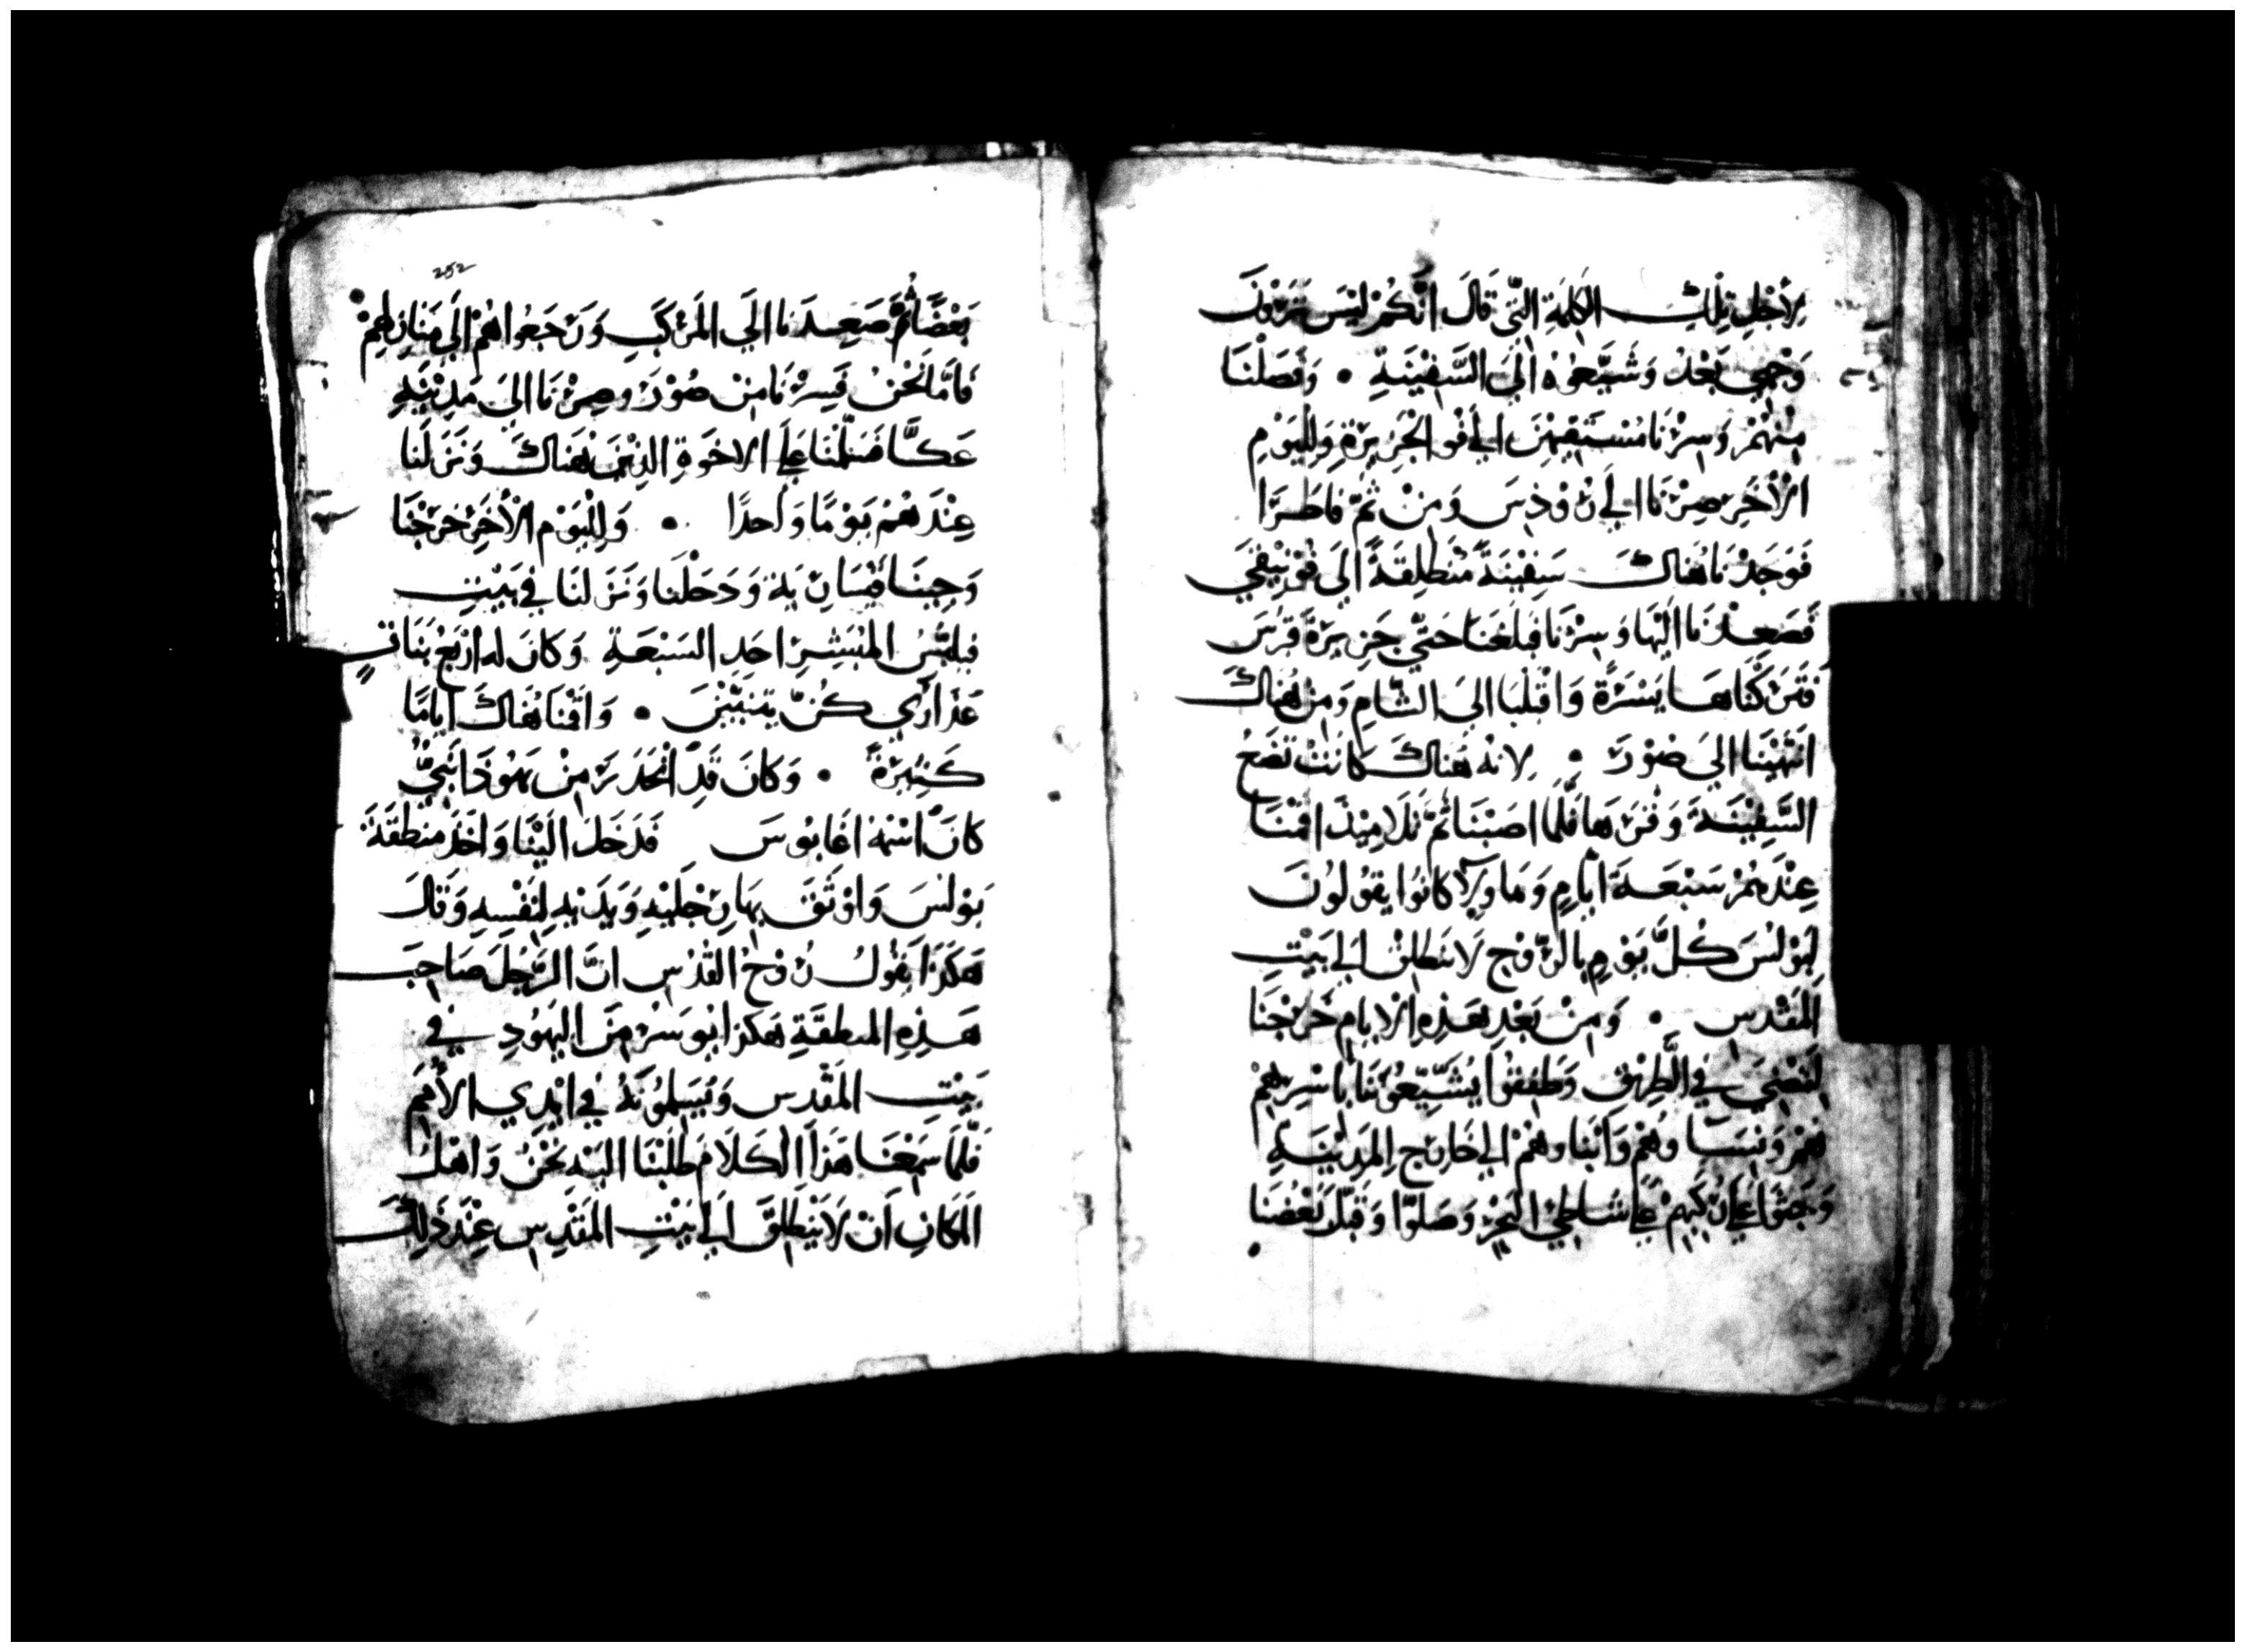 لِأَجْلِ تِلْكَ الكَلِمَةِ الَّتِي قَالَ انَّكُمْ لَيْسَ تَرَوْنَ
وَجْهِي بَعْدُ وَشَيَّعُوْهُ الَيَ السَّفِيْنَةِ • وَفَصَلْنَا
مِنْهُمْ وَسِرْنَا مُسْتَقِيْمِيْنَ الي قو الجَزِيْرَةِ وَلِليَوْمِ
الْأخَرِ صِرْنَا الي رُوْذِسَ وَمِنْ ثَمَّ فاطَرَا
فَوَجَدْنَا هُنَاكَ سَفِيْنَةً مُنْطَلِقَةً الَي فُوْنِيْقِي
فَصَعِدْنَا الَيْهَا وَسِرْنَا فَبَلَغْنَا حَتَّي جَزِيْرَةَ قُبْرُسَ
فَتَرَكْنَاهَا يَسْرَةً وَاقْبَلْنَا الَيَ الشَّامِ وَمِنْ هُنَاكَ
انْتَهَيْنَا الَيَ صُوْرَ • لِانهُ هُنَاكَ كَانَتْ تَضَعُ
السَّفِيْنَةُ وَقْرَهَا فَلَمَّا اصَبْنَا ثَمَّ تَلَامِيْذَ اقَمْنَا
عِنْدَهُمْ سَبْعَةَ ايَّامٍ وَهَاولَآ كانُوا يَقُولُونَ
لِبَوْلُسَ كُلَّ يَوْمٍ بِالرُّوْحِ لَا تَنطَلِقْ الي بَيْتِ
المَقْدسِ • وَمِنْ بَعْدِ هَذِهِ الْايامِ خَرَجْنَا
لِنَمْضِيَ فِي الطَّرِيْقِ وَطَفِقُوْا يُشَيِّعُوْنَنَا بِاسْرِهِمْ
هُمْ وَنِسَا وهُمْ وَابْنَاوهُمْ الي خَارِجِ المَدِيْنَةِ
وَجَثَوْا عَلَي رُكَبِهِمْ عَلي شَاطِيِ البَحْرِ وَصَلَوْا وَقَبَّلَ بَعْضُنَا
252
بَعْضًا ثُمَّ صَعِدْنَا الَي المَرْكَبِ وَرَجَعُوا هُمْ الَي مَنَازِلِهِمْ
فَامَّا نَحْنُ فَسِرْنَا مِنْ صُوْرَ وصِرْنَا الَيَ مَدِيْنَةِ
عَكَّا فَسَلَّمْنَا عَلَي الاخوَةِ الذِيْنَ هُنَاكَ وَنَزَلْنَا
عِنْدَهُمْ يَوْمًا وَاحدًا • وَلِلْيَوْمِ الْأخَرِ خَرَجْنَا
وَجِيْنَا قَيْسَارِيَة وَدَخَلْنَا وَنَزَلنَا فِي بَيْتِ
فِيلبُّسَ المُبَشِّرِ احَدِ السَبْعَةِ وَكَانَ له ارْبَعُ بَنَاتٍ
عَذَارَي كُنَّ يتنبَّيْنَ • وَاقَمْنَا هُنَاكَ ايامًا
كَثِيْرَةً • وَكَانَ قَدِ انْحَدَرَ مِنْ يَهُوْذَا نَبِيٌّ
كَانَ اسْمُهُ اغَابُوسَ فَدَخَلَ الَيْنَا وَاخَذَ مِنْطَقَةَ
بَوْلُسَ وَاوْثَقَ بِهَا رِجْلَيْهِ وَيَدَيْهِ لِنَفْسِهِ وَقَالَ
هَكَذَا يَقُوْلُ رُوْحُ القُدُسِ انَّ الرَّجُلَ صَاحِبَ
هَذِهِ المنطقَةِ هَكذا يُوسَرُ مِنَ اليَهُودِ فِي
بَيْتِ المَقْدسِ وَيُسَلِمُوْنَهُ فِي ايْدِي الأُمَمِ
فَلَمَّا سَمِعْنَا هَذَا الكَلَامَ طَلَبْنَا اليْهِ نَحْنُ وَاهْلُ
المَكَانِ اَنْ لَا يَنْطَلِقَ الَي بَيْتِ المَقْدِسِ عِنْدَ ذَلِكَ